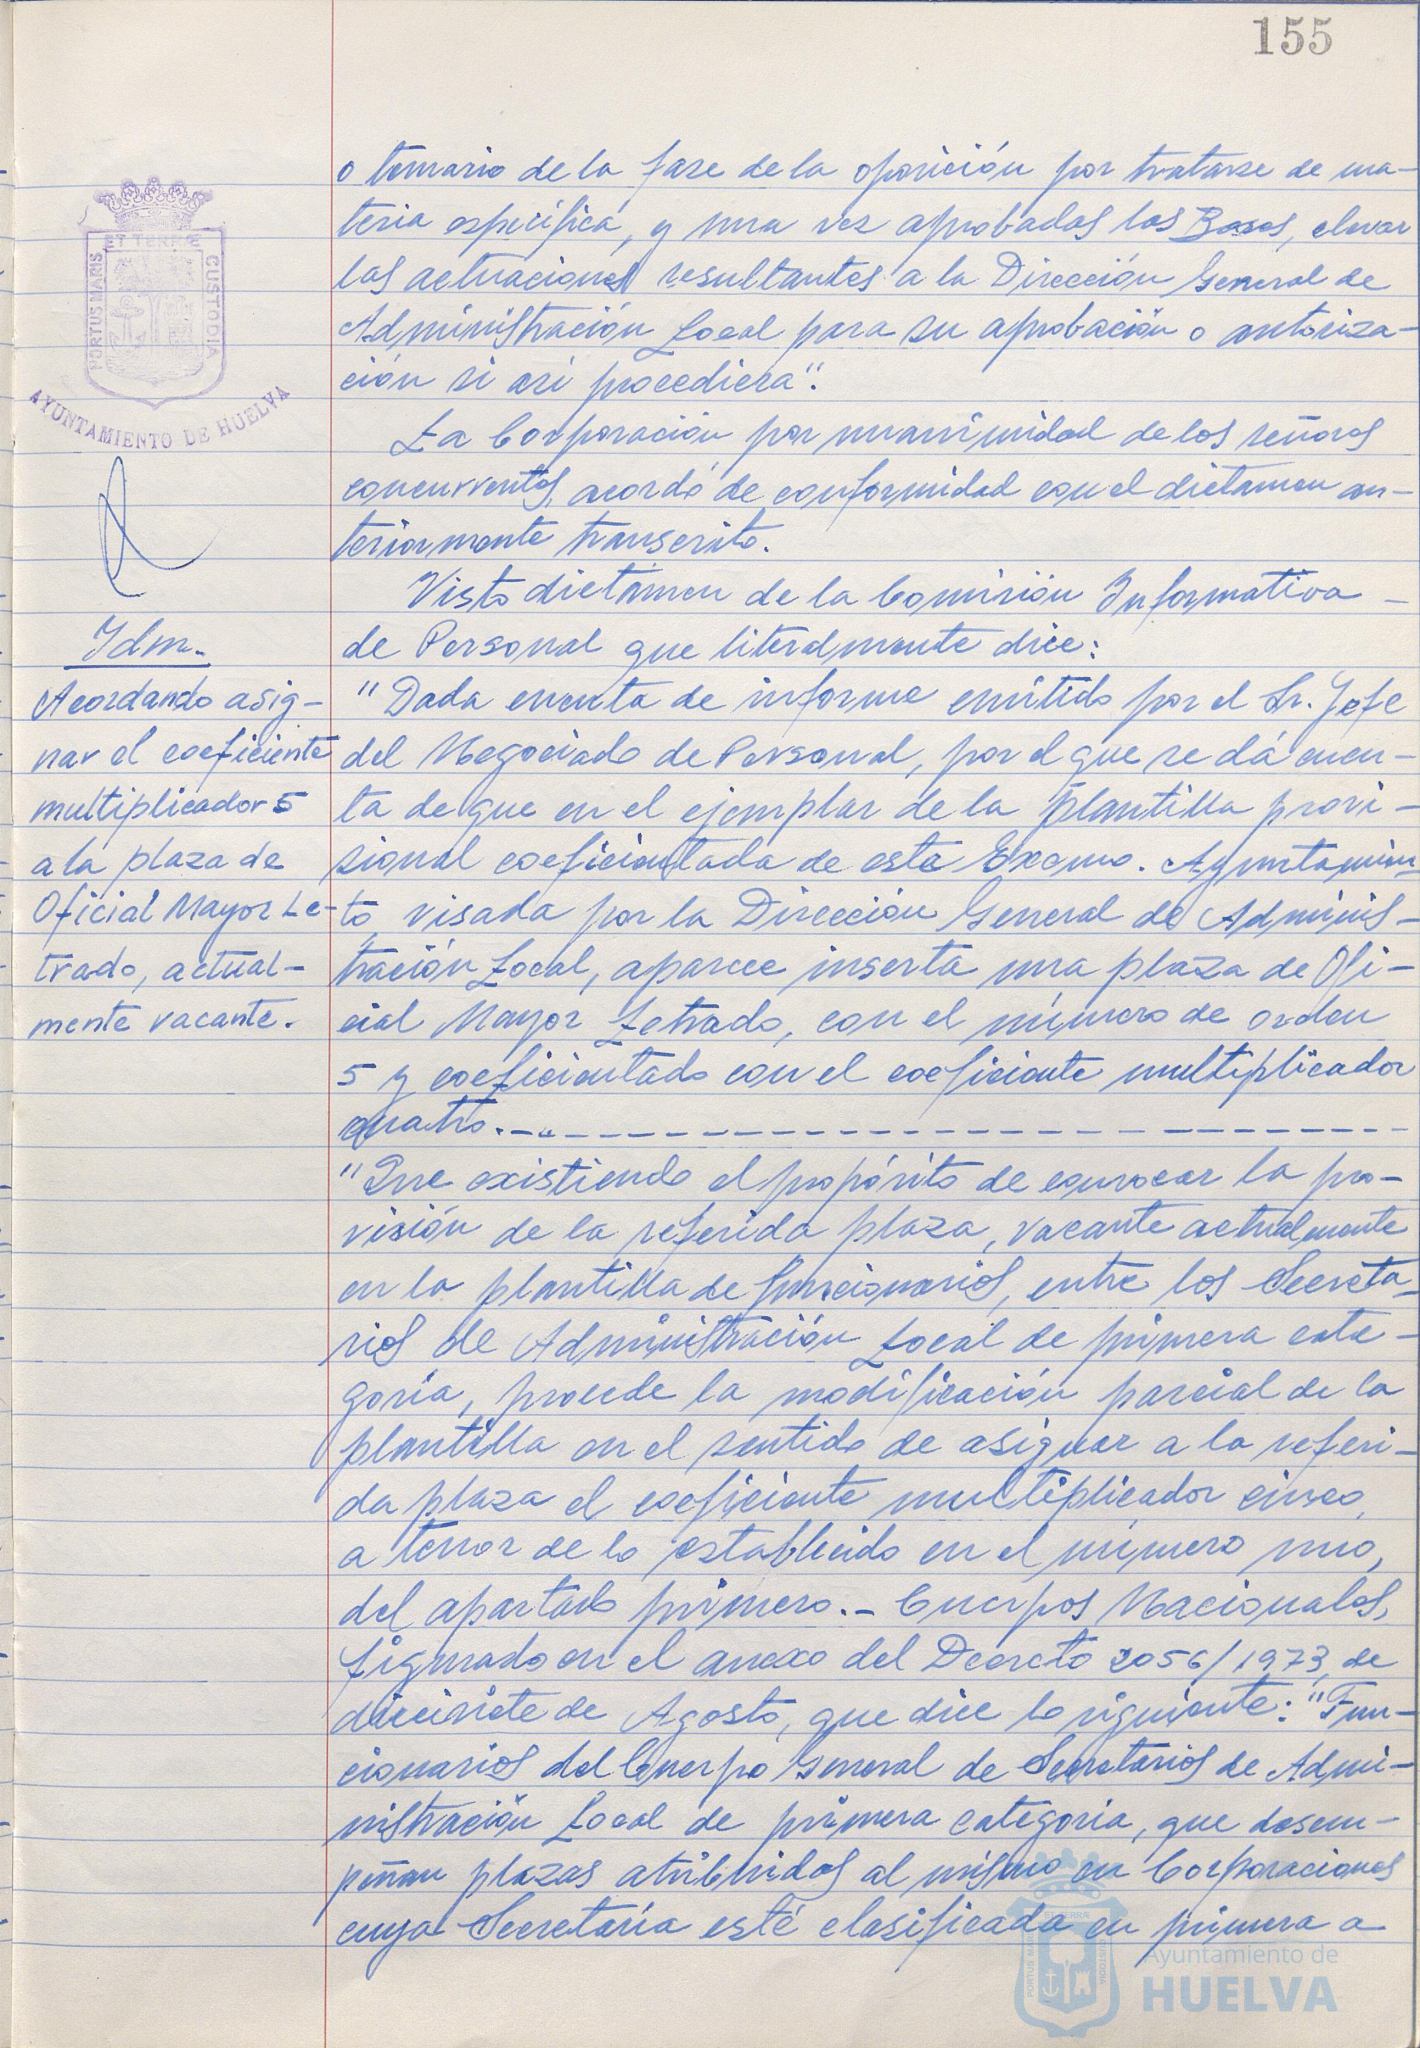 155
o temario de la fase de la oposición por tratarse de ma-
teria específica, y una vez aprobadas las Bases, elevar
las actuaciones resultantes a la Dirección General de
Administración Local para su aprobación o autoriza-
ción si así procediera".
La Corporación, por unanimidad de los señores
concurrentes, acordó de conformidad con el dictamen an-
teriormente transcrito.
Visto dictámen de la Comisión Informativa -
de Personal que literalmente dice:
"Dada cuenta de informe emitido por el Sr. Jefe
del Negociado de Personal, por el que se dá cuen-
ta de que en el ejemplar de la plantilla provi-
sional coeficientada de este Excmo. Ayuntamien-
to, visada por la Dirección General de Adminis-
tración Local, aparece inserta una plaza de Ofi-
cial Mayor Letrado, con el número de orden
5 y coeficientado con el coeficiente multiplicador
cuatro.-
"Que existiendo el propósito de convocar la pro-
visión de la referida plaza, vacante actualmente
en la plantilla de funcionarios, entre los Secreta-
rios de Administración Local de primera cate-
goría, procede la modificación parcial de la
plantilla en el sentido de asignar a la referi-
da plaza el coeficiente multiplicador cinco,
a tenor de lo establecido en el número uno,
del apartado primero.- Cuerpos Nacionales,
figurado en el anexo del Decreto 2056/1973, de
diecisiete de Agosto, que dice lo siguiente: "Fun-
cionarios del Cuerpo General de Secretarios de Admi-
nistración Local de primera categoría, que desem-
peñan plazas atribuidas al mismo en Corporaciones
cuya Secretaría esté clasificada en primera a
ET TERRÆ
PORTUS MARIS
CUSTODIA
AYUNTAMIENTO DE HUELVA
Idm.
Acordando asig-
nar el coeficiente
multiplicador 5
a la plaza de
Oficial Mayor Le-
trado, actual-
mente vacante.
Ayuntamiento de
HUELVA